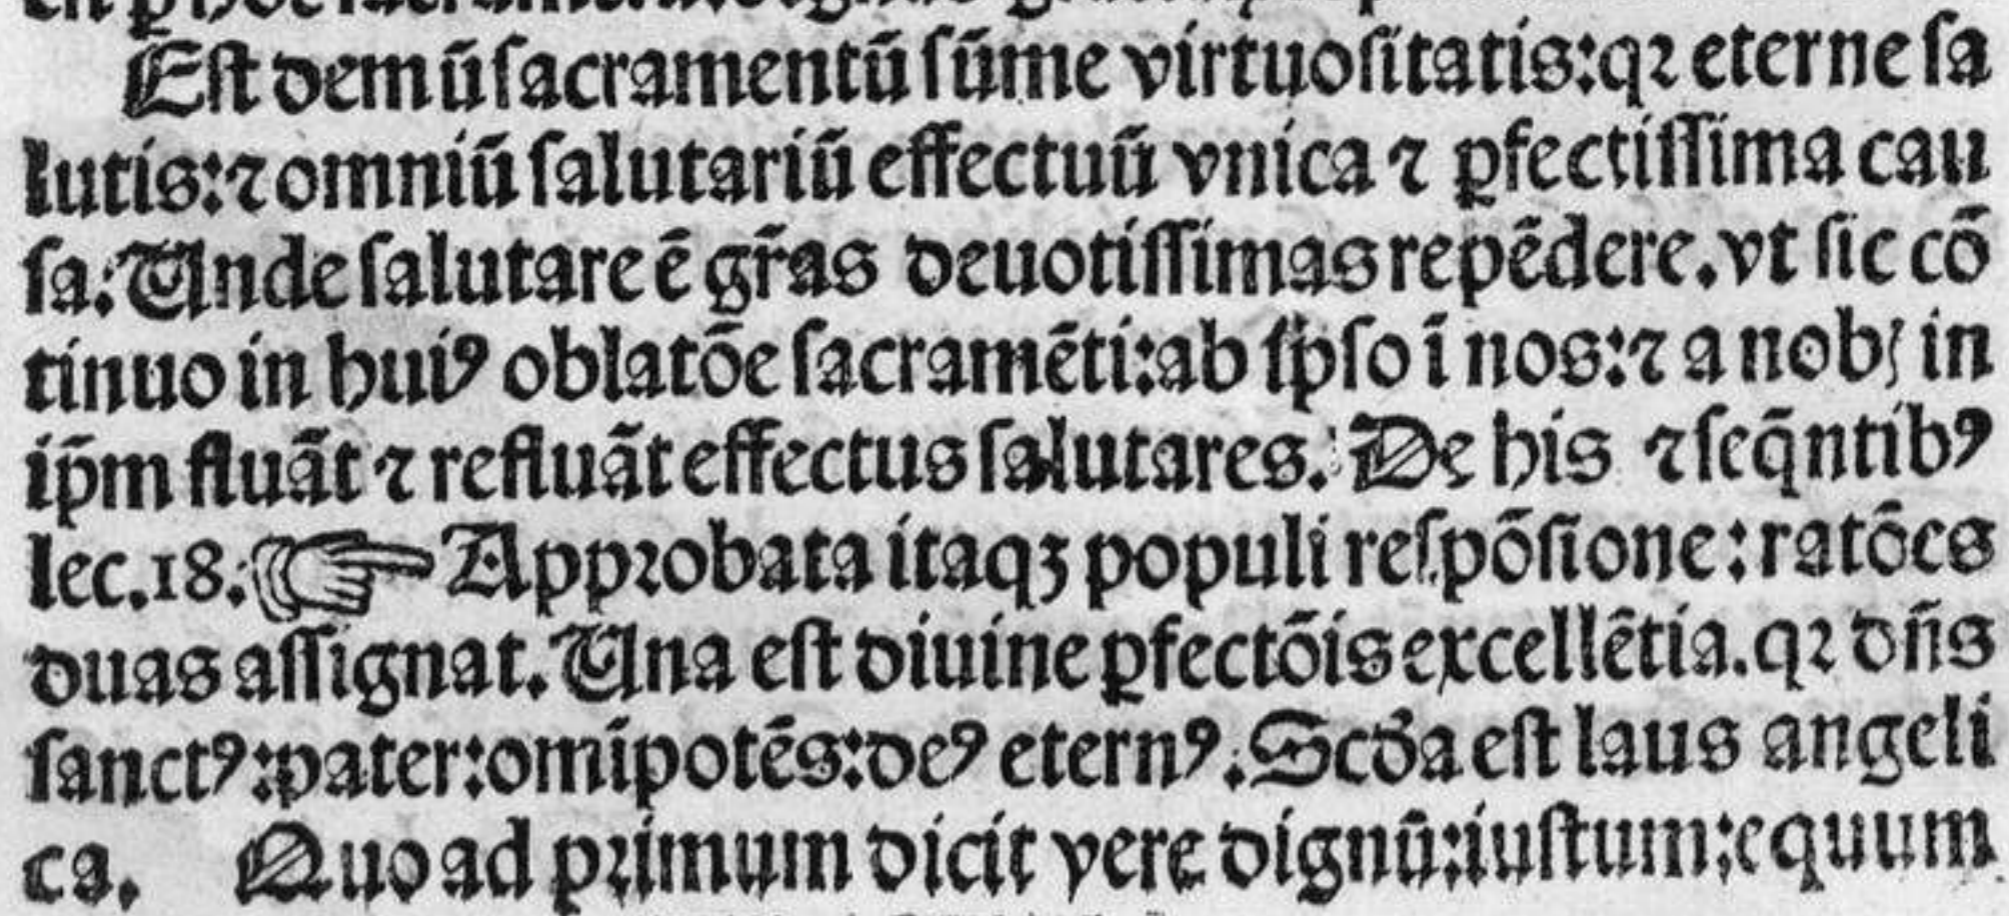 Eſt demū ſacramentū ſūme virtuoſitatis:qꝛ eterne ſa
lutis:⁊ omniū ſalutariū effectuū vnica ⁊ ꝑfectiſſima cau
ſa. Unde ſalutare ē gr̄as deuotiſſimas repēdere. vt ſic cō
tinuo in huiꝰ oblatōe ſacramēti:ab ip̄ſo ī nos:⁊ a nobꝭ in
ip̄m fluāt ⁊ refluāt effectus ſalutares. De his ⁊ ſeq̄ntibꝰ
lec.18. ☞ Appꝛobata itaqꝫ populi reſpōſione: ratōes
duas aſſignat. Una eſt diuine ꝑfectōis excellētia. qꝛ dn̄s
ſanctꝰ:pater:omīpotēs:deꝰ eternꝰ. Scd̄a eſt laus angeli
ca. Quo ad pꝛimum dicit vere dignū:iuſtum:equum